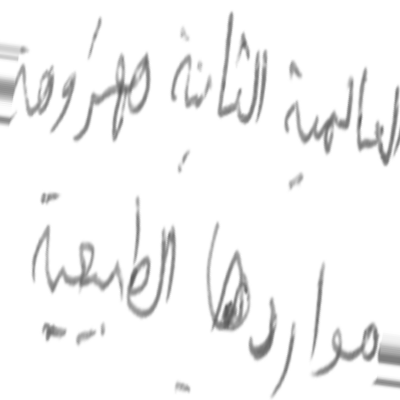 العالمية الثانية مهزومة
مواردها الطبيعية